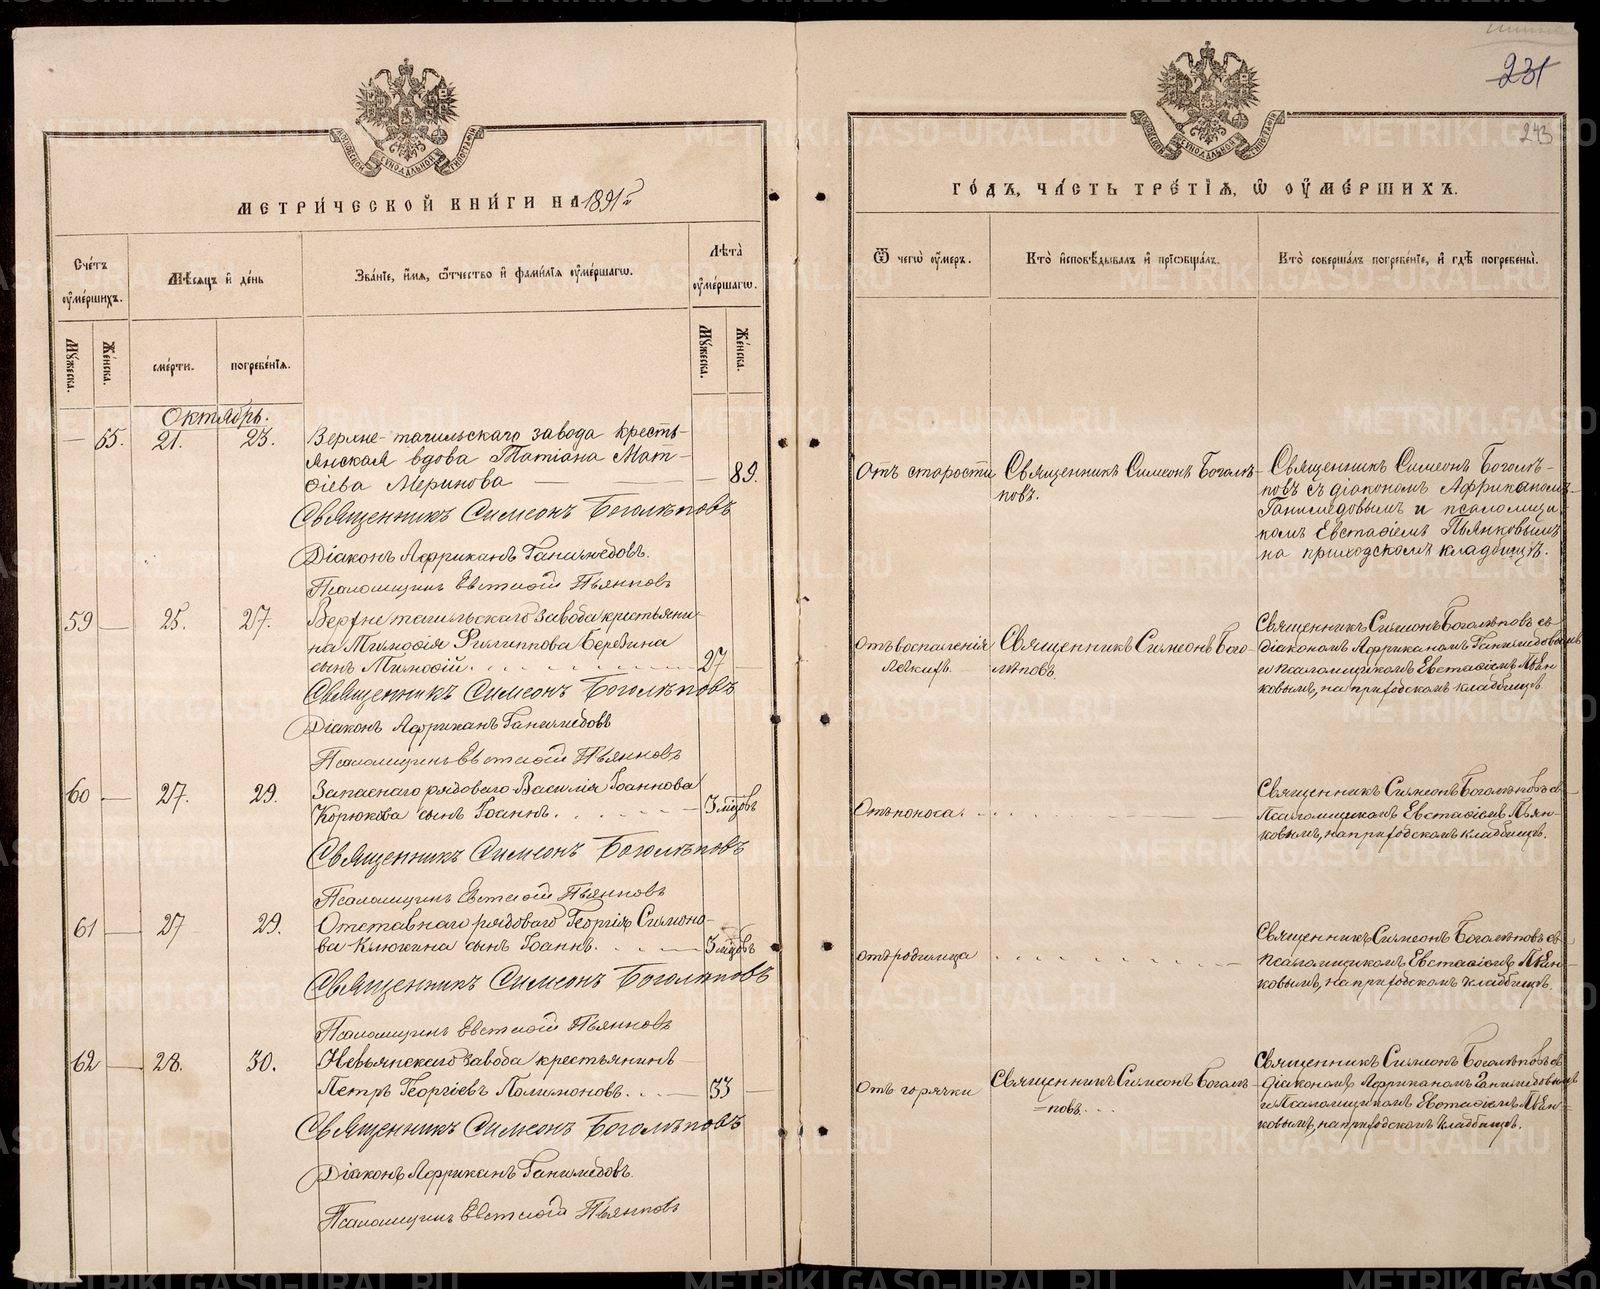 231
243
МЕТРИ́ЧЕСКОЙ КНИ́ГИ НА 1891 й
ГО́ДЪ, ЧА́СТЬ ТРЕ́ТІѦ, Ѿ ОУМЕ́РШИХЪ.
Сче́тъ оумершихъ.
Мѣ́сяцъ и де́нь
Зва́ніе, и́мя, о́тчество и фами́лія оуме́ршагѡ.
Лѣта̀ оуме́ршагѡ.
Ѿ чегѡ̀ оу́меръ.
Кто̀ и҆сповѣ́дывалъ и҆ прїѡбща́лъ.
Кто̀ соверша́лъ погребе́ніе, и҆ гдѣ̀ погребены̀.
Му́жеска.
Же́нска.
сме́рти.
погребе́нїѧ.
Му́жеска.
Же́нска.
Октябрь.
— 65. 21. 23. Верхне-тагильскаго завода кресть-
янская вдова Татіана Мат-
ѳіева Меринова — — 89.
Священникъ Симеонъ Боголѣповъ
Діаконъ Африканъ Ганимедовъ.
Псаломщикъ Евстаѳій Пьянковъ
Отъ старости
Священникъ Симеонъ Боголѣ-
повъ.
Священникъ Симеонъ Боголѣ-
повъ съ діакономъ Африканомъ
Ганимедовымъ и псаломщи-
комъ Евстаѳіемъ Пьянковымъ
на приходскомъ кладбищѣ.
59 — 25. 27. Верхнетагильскаго завода крестьяни-
на Тимоѳія Филиппова Березина
сынъ Тимоѳій. 27
Священникъ Симеонъ Боголѣповъ
Діаконъ Африканъ Ганимедовъ
Псаломщикъ Евстаѳій Пьянковъ
Отъ воспаленія
легкихъ.
Священникъ Симеонъ Бого-
лѣповъ.
Священникъ Симеонъ Боголѣповъ съ
діакономъ Африканомъ Ганимедовымъ
и псаломщикомъ Евстаѳіемъ Пьян-
ковымъ, на приходскомъ кладбищѣ
60 — 27. 29. Запаснаго рядоваго Василія Іоаннова
Корюкова сынъ Іоаннъ. 3 мцовъ
Священникъ Симеонъ Боголѣповъ
Псаломщикъ Евстаѳій Пьянковъ
Отъ поноса.
Священникъ Симеонъ Боголѣповъ съ
псаломщикомъ Евстаѳіемъ Пьян-
ковымъ, на приходскомъ кладбищѣ.
61 — 27 29. Отставнаго рядоваго Георгія Симоно-
ва Клюкина сынъ Іоаннъ. 3 мцовъ
Священникъ Симеонъ Боголѣповъ
Псаломщикъ Евстаѳій Пьянковъ
отъ родимца
Священникъ Симеонъ Боголѣповъ съ
псаломщикомъ Евстаѳіемъ Пьян-
ковымъ, на приходскомъ кладбищѣ.
62 — 28. 30. Невьянскаго завода крестьянинъ
Петръ Георгіевъ Полимоновъ. 33 —
Священникъ Симеонъ Боголѣповъ
Діаконъ Африканъ Ганимедовъ.
Псаломщикъ Евстаѳій Пьянковъ
Отъ горячки
Священникъ Симеонъ Боголѣ-
=повъ.
Священникъ Симеонъ Боголѣповъ съ
діакономъ Африканомъ Ганимедовымъ
и псаломщикомъ Евстаѳіемъ Пьян-
ковымъ, на приходскомъ кладбищѣ.
METRIKI.GASO-URAL.RU